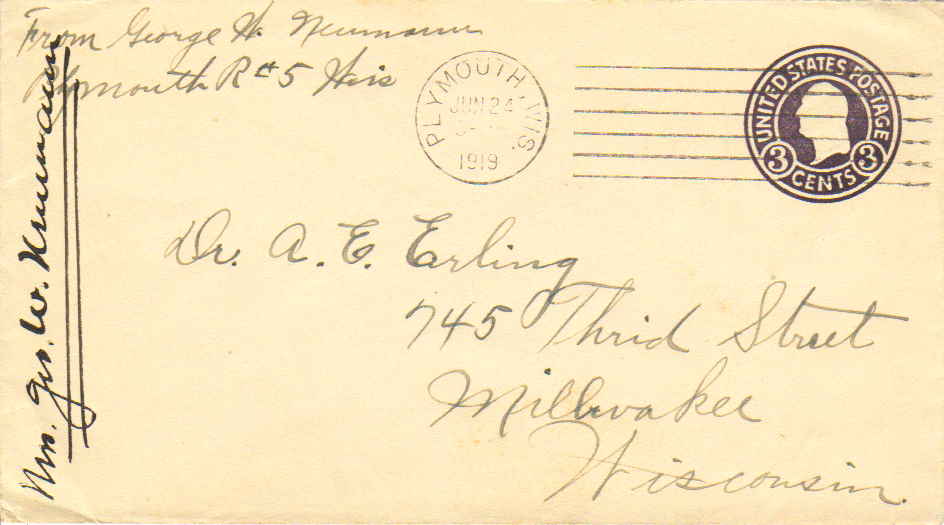 From George W. Neumann
Plymouth R # 5 Wis
PLYMOUTH, WIS.
JUN 24
1919
UNITED STATES POSTAGE
3 CENTS 3
Dr. A. E. Erling
745 Thrid Street
Millwakee
Wisconsin.
Mrs. Geo. W. Neumann